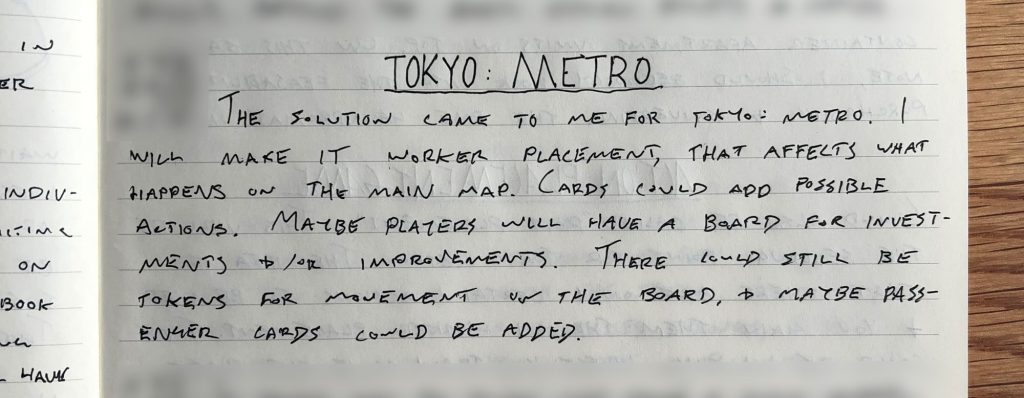 IN
ER
INDIV-
ON
BOOK
HAVE
TOKYO: METRO
THE SOLUTION CAME TO ME FOR TOKYO: METRO. I
WILL MAKE IT WORKER PLACEMENT, THAT AFFECTS WHAT
HAPPENS ON THE MAIN MAP. CARDS COULD ADD POSSIBLE
ACTIONS. MAYBE PLAYERS WILL HAVE A BOARD FOR INVEST-
MENTS & /OR IMPROVEMENTS. THERE COULD STILL BE
TOKENS FOR MOVEMENT ON THE BOARD, & MAYBE PASS-
ENGER CARDS COULD BE ADDED.